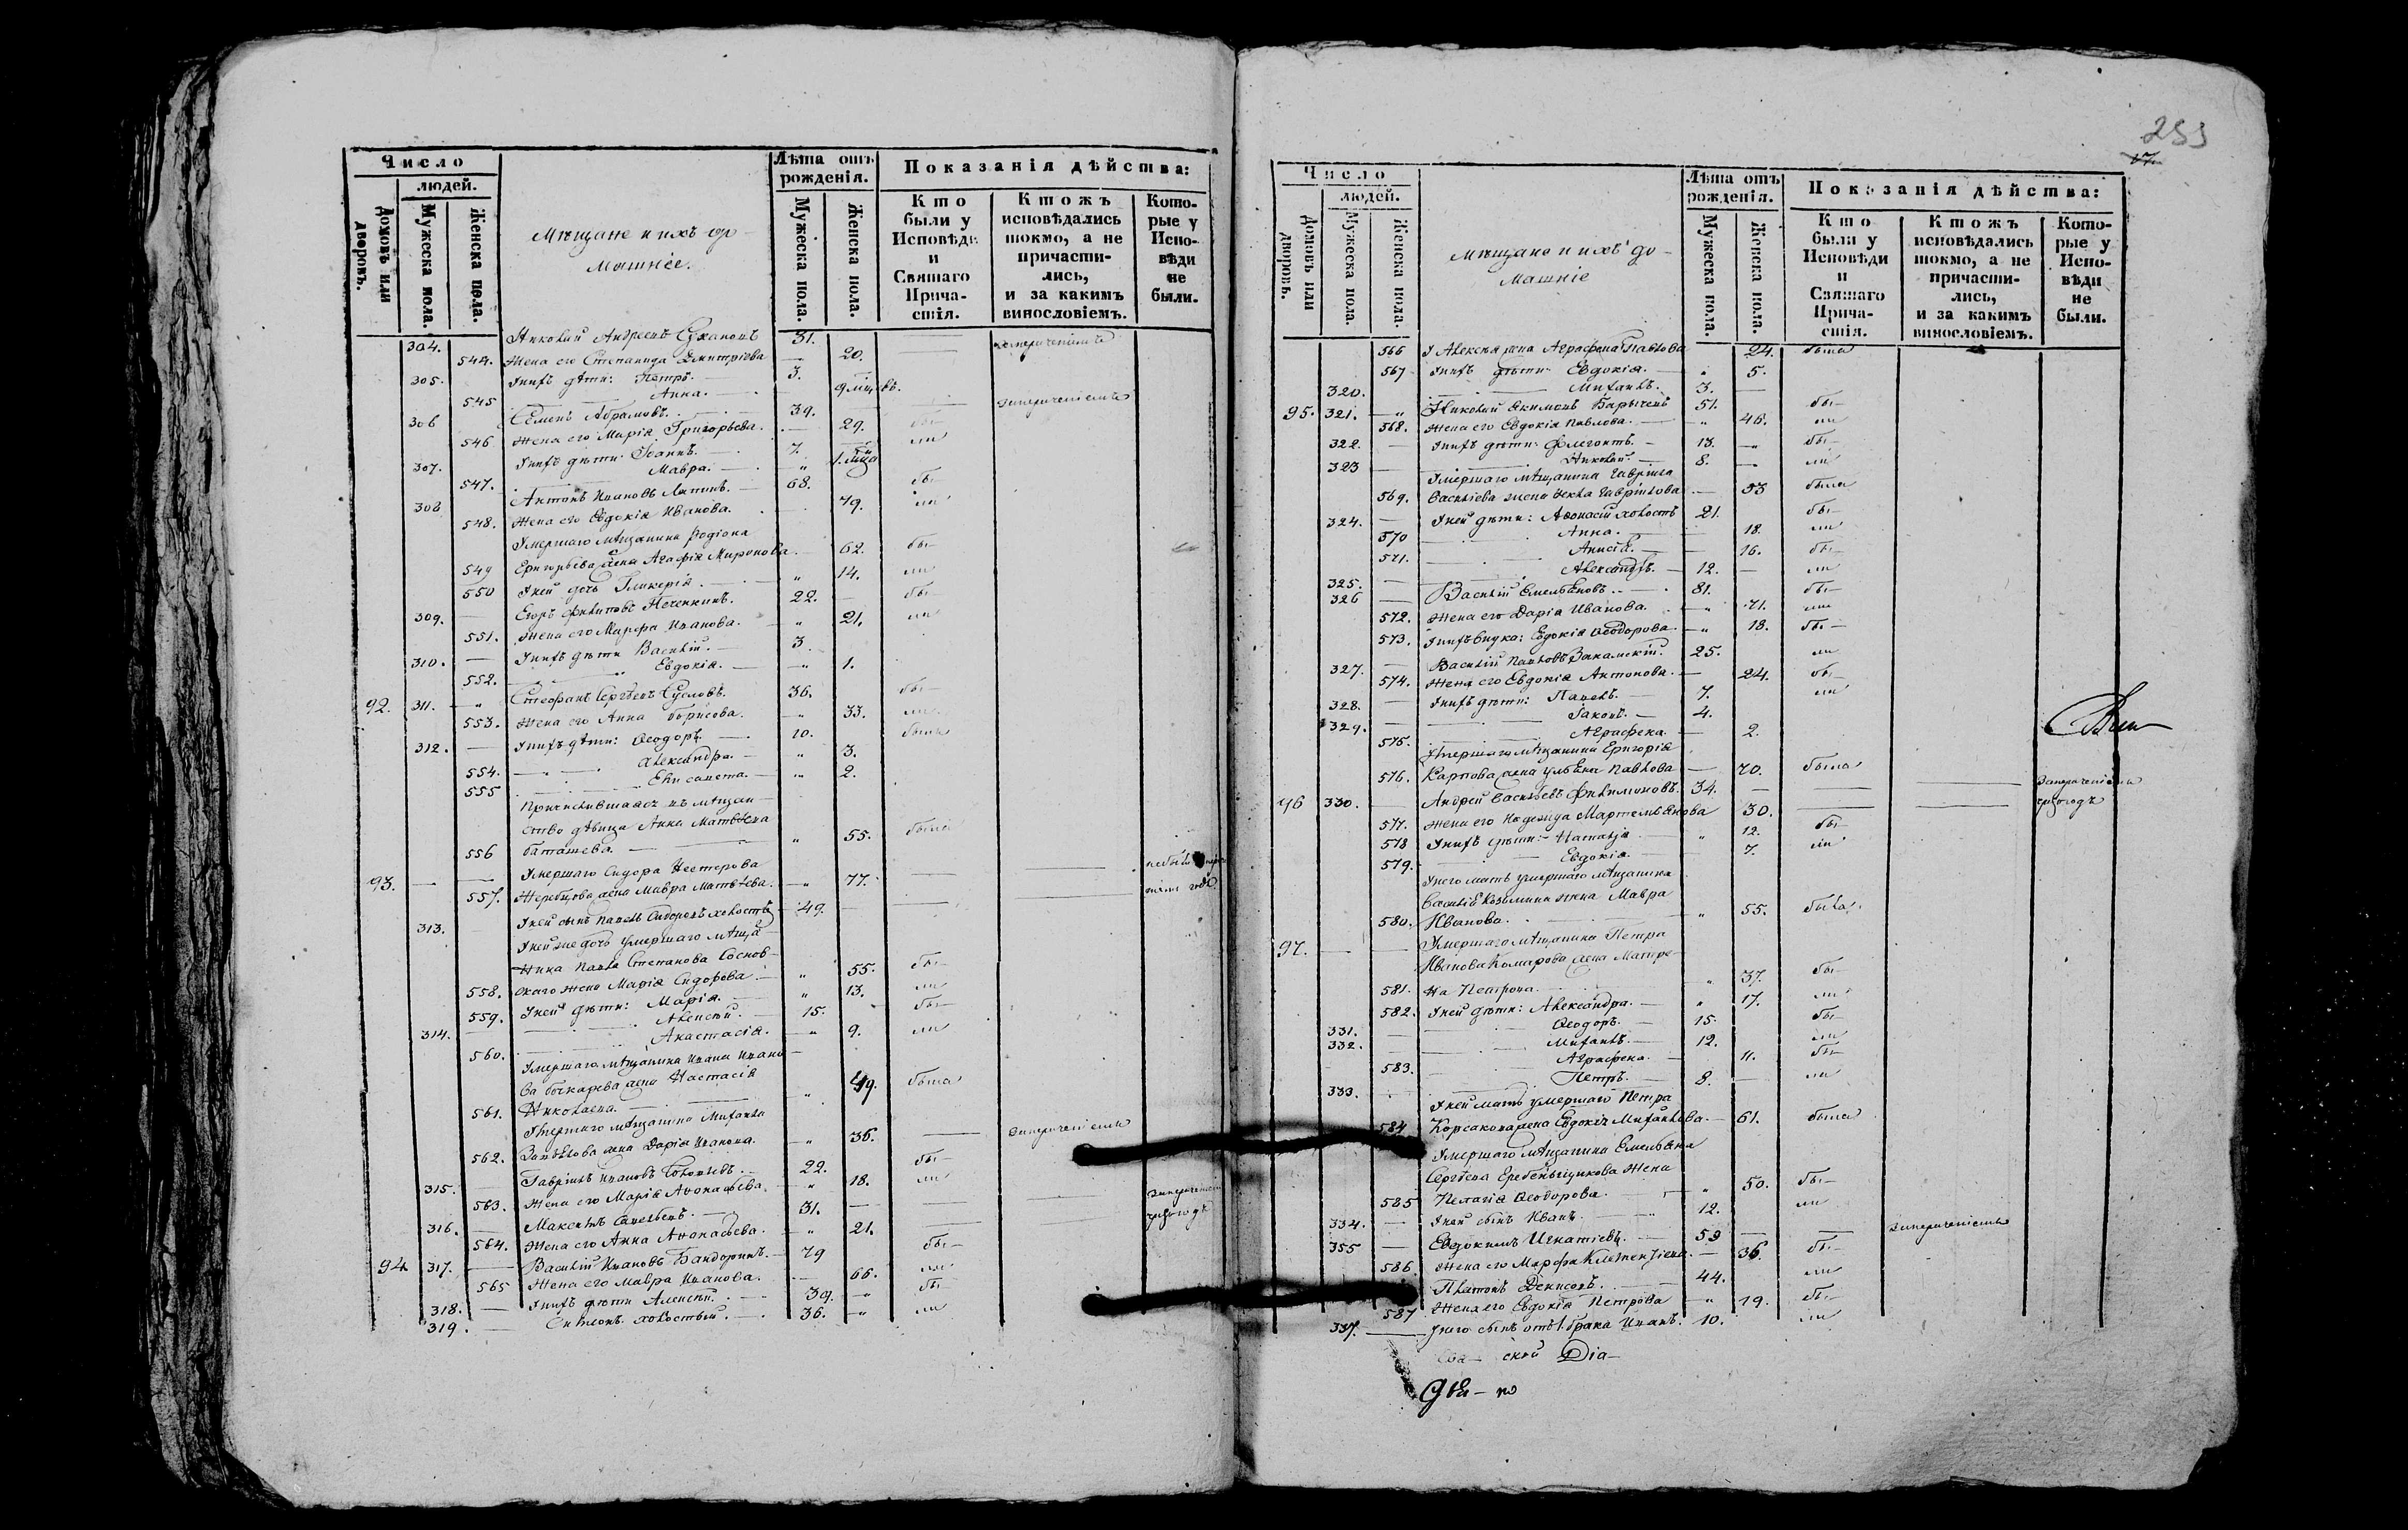 Число
людей.
Домовъ или дворовъ.
Мужеска пола.
Женска пола.
Мѣщане и ихъ до-
машніе.
Лѣта отъ рожденія.
Мужеска пола.
Женска пола.
Показанія дѣйства:
Кто были у Исповѣди и Святаго Прича-стія.
Ктожъ исповѣдались токмо, а не причасти-лись, и за какимъ винословіемъ.
Кото-рые у Испо-вѣди не были.
304. Николай Андреевъ 31.
544. Жена его Степанида Дмитріева 20.
305. У нихъ дѣти: Петръ. 3.
545 Анна. 9 мѣц
306 Семенъ Абрамовъ. 39.
546. Жена его Марія Григорьева. 29. бы-
307. У нихъ дѣти: Іоаннъ. 7. ли
547. Мавра. 1.
308 Антонъ Ивановъ Лапинъ. 68. бы-
548. Жена его Евдокія Иванова. 79. ли
Умершаго мѣщанина Родіона
549 Григорьева жена Агафія Миронова. 62. бы-
550 У ней дочь Гликерія. 14. ли
309. Егоръ Филиповъ Печенкинъ. 22. бы-
551. Жена его Марфа Иванова. 21. ли
310. У нихъ дѣти Василій. 3
552. Евдокія. 1.
92. 311. Стефанъ Сергѣевъ Сусловъ. 36. бы-
553. Жена его Анна Борисова. 33. ли
312. У нихъ дѣти: Ѳеодоръ. 10. былъ
554. Александра. 3.
555 Елисавета. 2.
Причислившаяся въ мѣщан-
ство дѣвица Анна Матвѣева
556 Баташева. 55. была
Умершаго Сидора Нестерова
93. 557. Жеребцова жена Мавра Матвѣева. 77.
313. У ней сынъ Павелъ Сидоровъ холостъ 49.
У ней же дочь умершаго мѣща-
нина Павла Степанова Соснов-
558. скаго жена Марія Сидорова 55. бы-
559. У ней дѣти: Марія. 13. ли
314. Алексѣй. 15. бы-
560. Анастасія. 9. ли
Умершаго мѣщанина Ивана Ивано-
ва Бочкарева жена Настасія
561. Николаева. 49. была
Умершаго мѣщанина Михаила
562. жена Дарія Иванова. 36.
315. Гавріилъ Ивановъ Соловьевъ. 22. бы-
563. Жена его Марія Аѳонасьева. 18. ли
316. Максимъ Савельевъ. 31.
564. Жена его Анна Аѳонасьева. 21.
94 317. Василій Ивановъ Бандоринъ. 79 бы-
565 Жена его Мавра Иванова. 66. ли
318. У нихъ дѣти Алексѣй. 39. бы-
319. Симеонъ холостый. 36. ли
255
Число
людей.
Домовъ или дворовъ.
Мужеска пола.
Женска пола.
Мѣщане и ихъ до-
машніе
Лѣта отъ рожденія.
Мужеска пола.
Женска пола.
Показанія дѣйства:
Кто были у Исповѣди и Святаго Прича-стія.
Ктожъ исповѣдались токмо, а не причасти-лись, и за какимъ винословіемъ.
Кото-рые у Испо-вѣди не были.
566 У Алексѣя жена Аграфена Павлова 24. была
567 У нихъ дѣти: Евдокія. 5.
320. Михаилъ. 3.
95. 321. Николай Якимовъ Барычевъ 51. бы-
568. Жена его Евдокія Павлова. 46. ли
322. У нихъ дѣти: Флегонтъ. 13. бы-
323 Николай. 8. ли
Умершаго мѣщанина Гавріила
569. Васильева жена Ѳекла Гавріилова 53 была
324. У ней дѣти: Аѳонасій холостъ 21. бы-
570 Анна. 18. ли
571. Анисія. 16. бы-
325. Александръ. 12. ли
326 Василій Емельяновъ. 81. бы-
572. Жена его Дарія Иванова. 71. ли
573. У нихъ внука: Евдокія Ѳеодорова. 18. бы-
327. Василій Павловъ Закамскій. 25. ли
574. Жена его Евдокія Антонова. 24. бы-
328. У нихъ дѣти: Павелъ. 7. ли
329. Іаковъ. 4.
575. Аграфена. 2.
Умершаго мѣщанина Григорія
576. Карпова жена Ульяна Павлова 70. была
96 330. Андрей Васильевъ Филимоновъ. 34.
577. Жена его Надежда Мартемьянова 30.
578 У нихъ дѣти: Наталья 12. бы-
579. Евдокія. 7. ли
У него мать умершаго мѣщанина
Василія Козимина жена Мавра
580. Иванова. 55. была.
97. Умершаго мѣщанина Петра
Иванова Комарова жена Матре-
581. на Петрова. 37. бы-
582. У ней дѣти: Александра. 17. ли
331. Ѳеодоръ. 15. бы-
332. Михаилъ. 12. ли
583. Аграфена. 11. бы-
333. Петръ. 8. ли
У ней мать умершаго Петра
584 Корсакова жена Евдокія Михайлова 61. была
Умершаго мѣщанина Емельяна
Сергѣева Гребеньщикова жена
585 Пелагія Ѳеодорова. 50. бы-
334. У ней сынъ Иванъ. 12. ли
355 Евдокимъ Игнатіевъ. 59
586. Жена его Марфа Климентіева. 36. бы-
Платонъ Денисовъ. 44. ли
587 Жена его Евдокія Петрова 19. бы-
337. У него сынъ отъ 1. брака Иванъ. 10. ли
ской Діа-